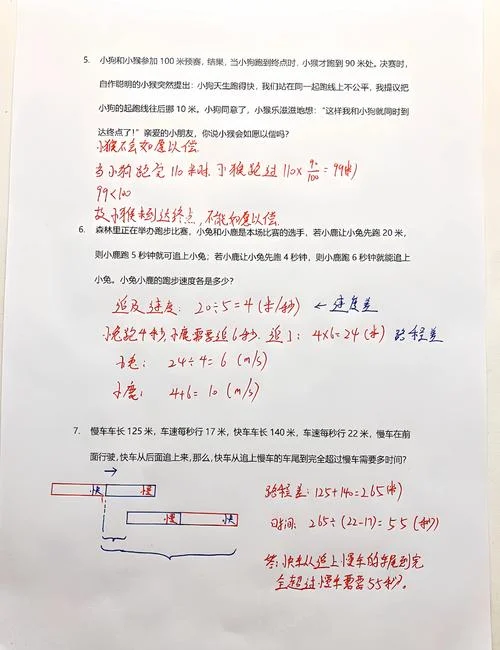 5. 小狗和小猴参加 100 米预赛，结果，当小狗跑到终点时，小猴才跑到 90 米处。决赛时，
自作聪明的小猴突然提出：小狗天生跑得快，我们站在同一起跑线上不公平，我提议把
小狗的起跑线往后挪 10 米。小狗同意了，小猴乐滋滋地想：“这样我和小狗就同时到
达终点了！”亲爱的小朋友，你说小猴会如愿以偿吗？
小猴不会如愿以偿
当小狗跑完 110 米时，小猴跑过 110×90/100=99(米)
99<100
故小猴未到达终点，不能如愿以偿.
6. 森林里正在举办跑步比赛，小兔和小鹿是本场比赛的选手，若小鹿让小兔先跑 20 米，
则小鹿跑 5 秒钟就可追上小兔；若小鹿让小兔先跑 4 秒钟，则小鹿跑 6 秒钟就能追上
小兔。小兔小鹿的跑步速度各是多少？
追及速度：20÷5=4(米/秒) ←速度差
小兔跑4秒，小鹿需要追6秒，追了：4×6=24(米) 路程差
小兔：24÷4=6(m/s)
小鹿：4+6=10(m/s)
7. 慢车车长 125 米，车速每秒行 17 米，快车车长 140 米，车速每秒行 22 米，慢车在前
面行驶，快车从后面追上来，那么，快车从追上慢车的车尾到完全超过慢车需要多时间？
快 慢
慢 快
路程差：125+140=265(米)
时间：265÷(22-17)=55(秒)
答：快车从追上慢车的车尾到完
全超过慢车需要55秒.